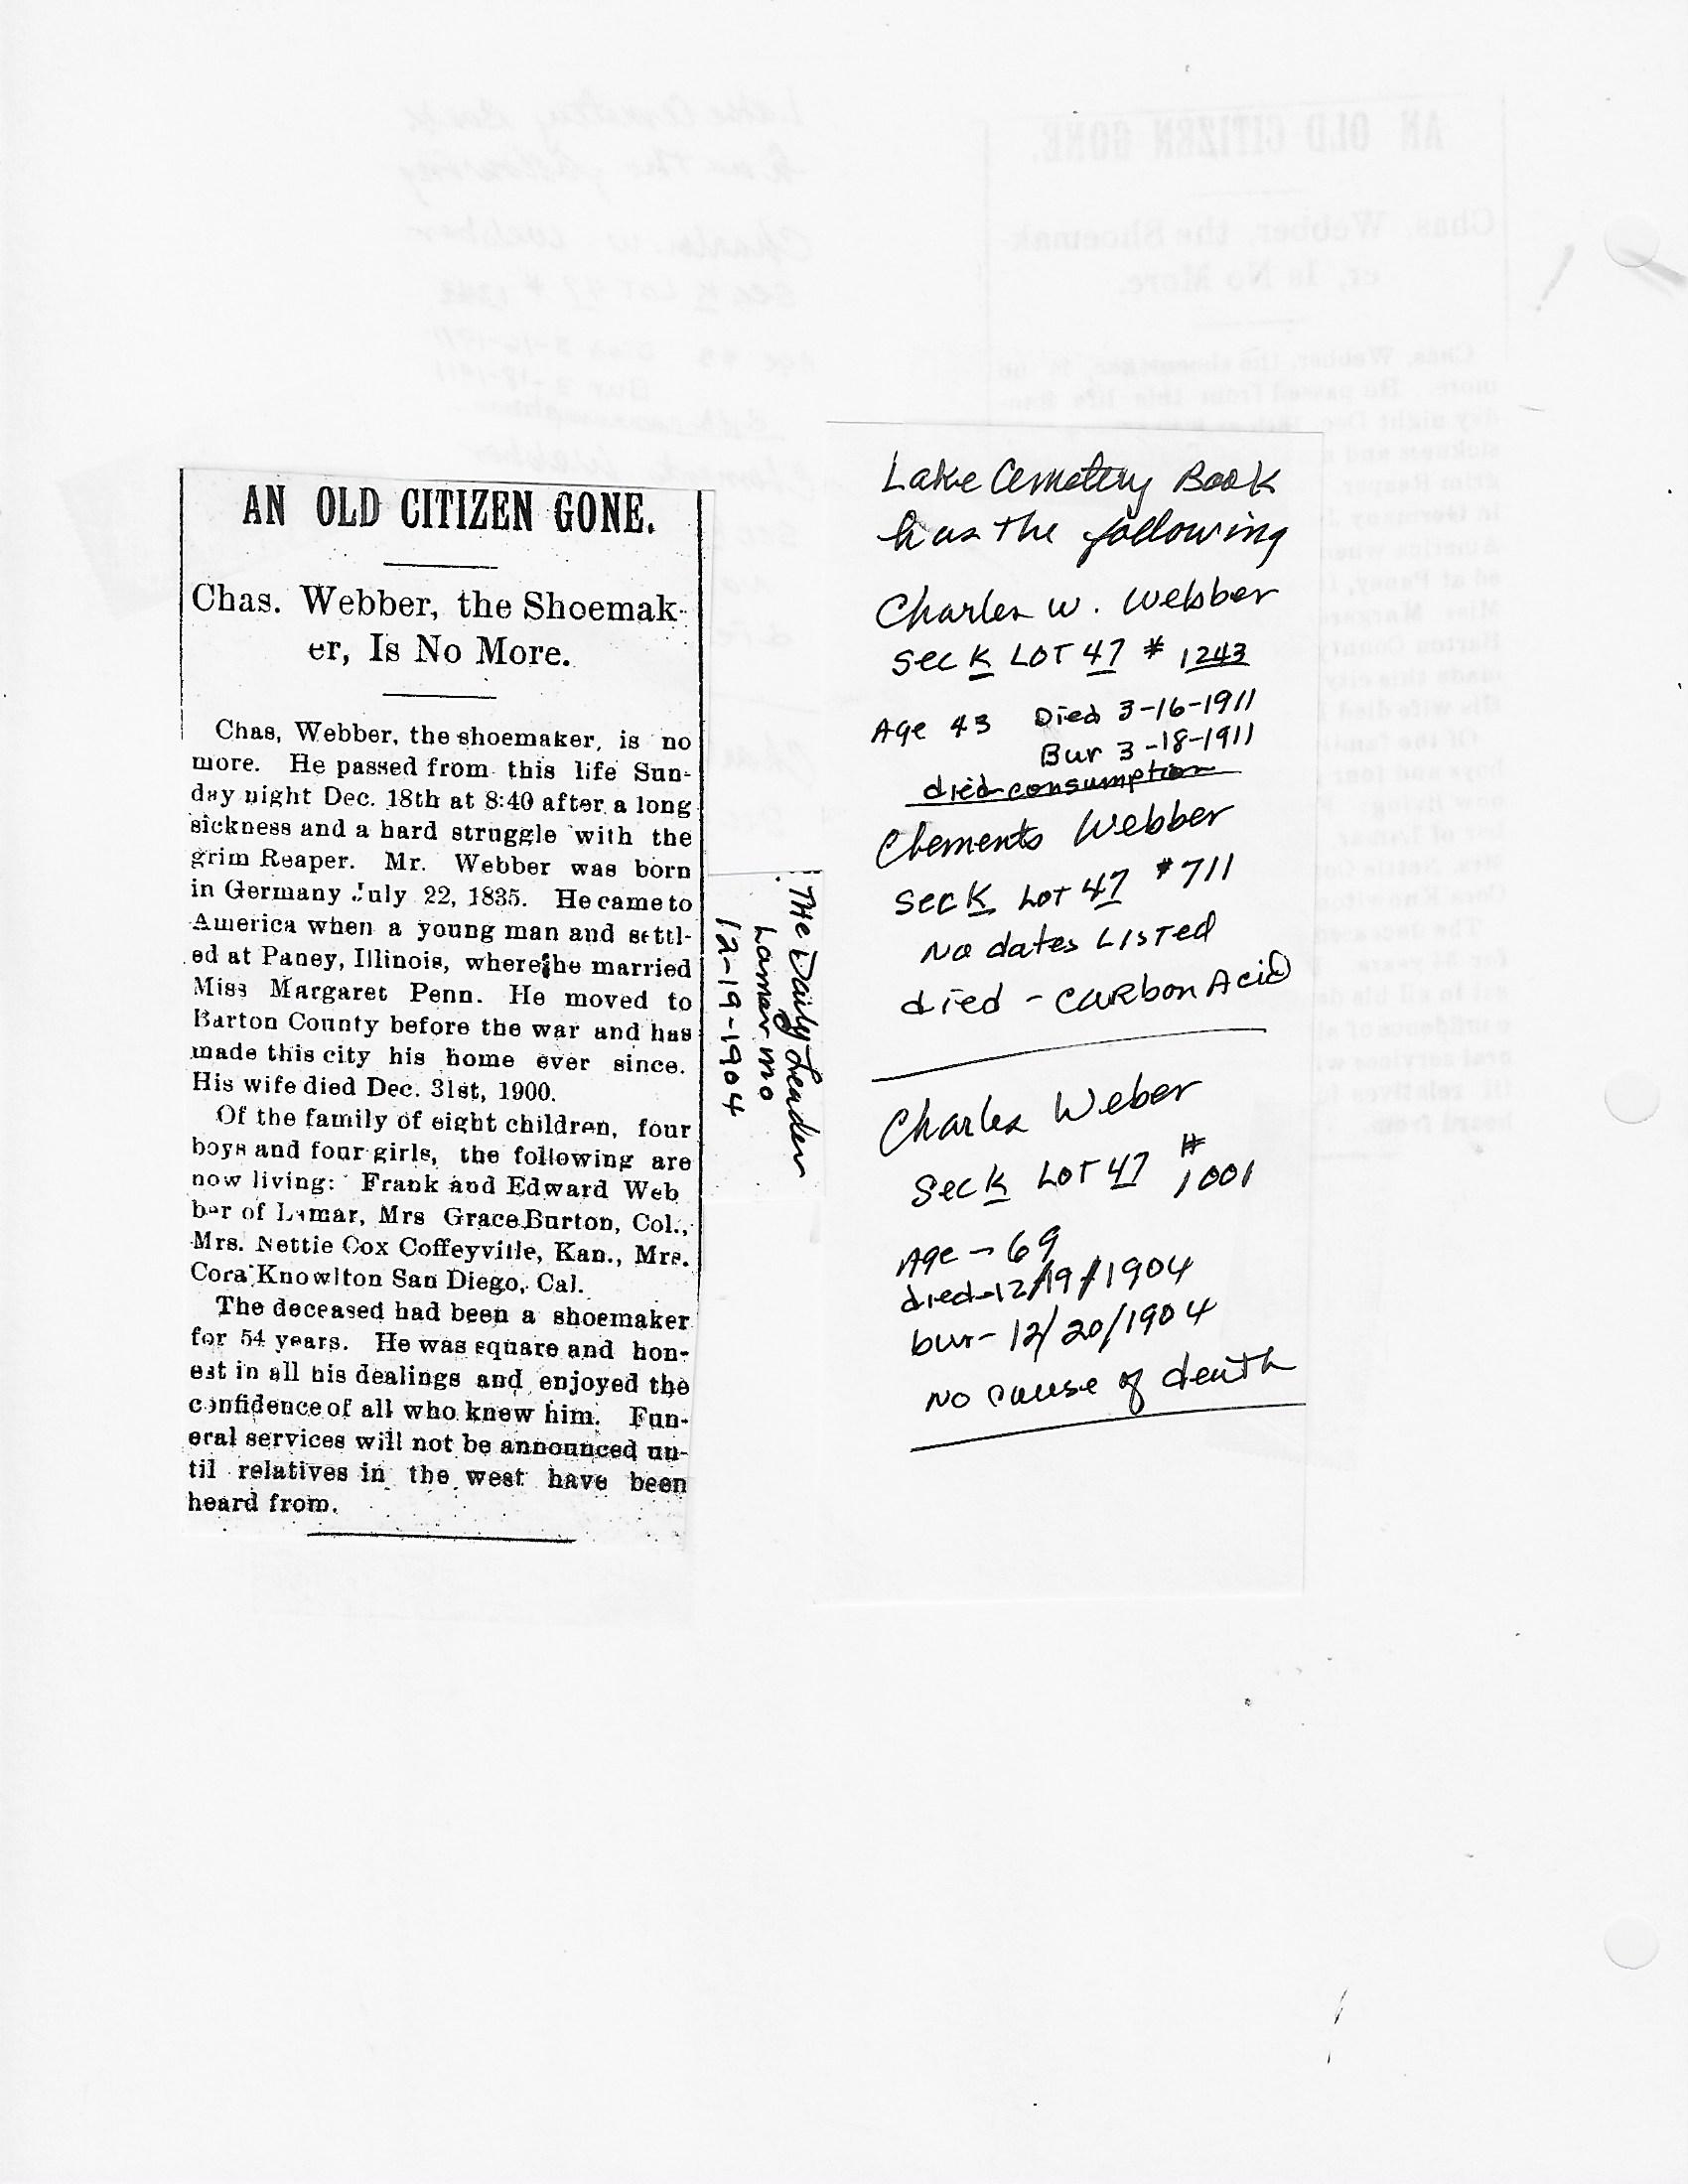 AN OLD CITIZEN GONE.
Chas. Webber, the Shoemak-
er, Is No More.
Chas, Webber, the shoemaker, is no
more. He passed from this life Sun-
day night Dec. 18th at 8:40 after a long
sickness and a hard struggle with the
grim Reaper. Mr. Webber was born
in Germany July 22, 1835. He came to
America when a young man and settl-
ed at Paney, Illinois, where he married
Miss Margaret Penn. He moved to
Barton County before the war and has
made this city his home ever since.
His wife died Dec. 31st, 1900.
Of the family of eight children, four
boys and four girls, the following are
now living: Frank and Edward Web
ber of Lamar, Mrs Grace Burton, Col.,
Mrs. Nettie Cox Coffeyville, Kan., Mrs.
Cora Knowlton San Diego, Cal.
The deceased had been a shoemaker
for 54 years. He was square and hon-
est in all his dealings and enjoyed the
confidence of all who knew him. Fun-
eral services will not be announced un-
til relatives in the west have been
heard from.
The Daily Leader
Lamar mo
12-19-1904
Lake Cemetery Book
has the following
Charles W. Webber
Sec K LOT 47 # 1243
Age 43 Died 3-16-1911
Bur 3-18-1911
died-consumption
Clements Webber
Sec K Lot 47 #711
No dates Listed
died - carbon Acid
Charles Weber
Sec K LOT 47 #
1001
Age - 69
died-12/19/1904
bur- 12/20/1904
No cause of death